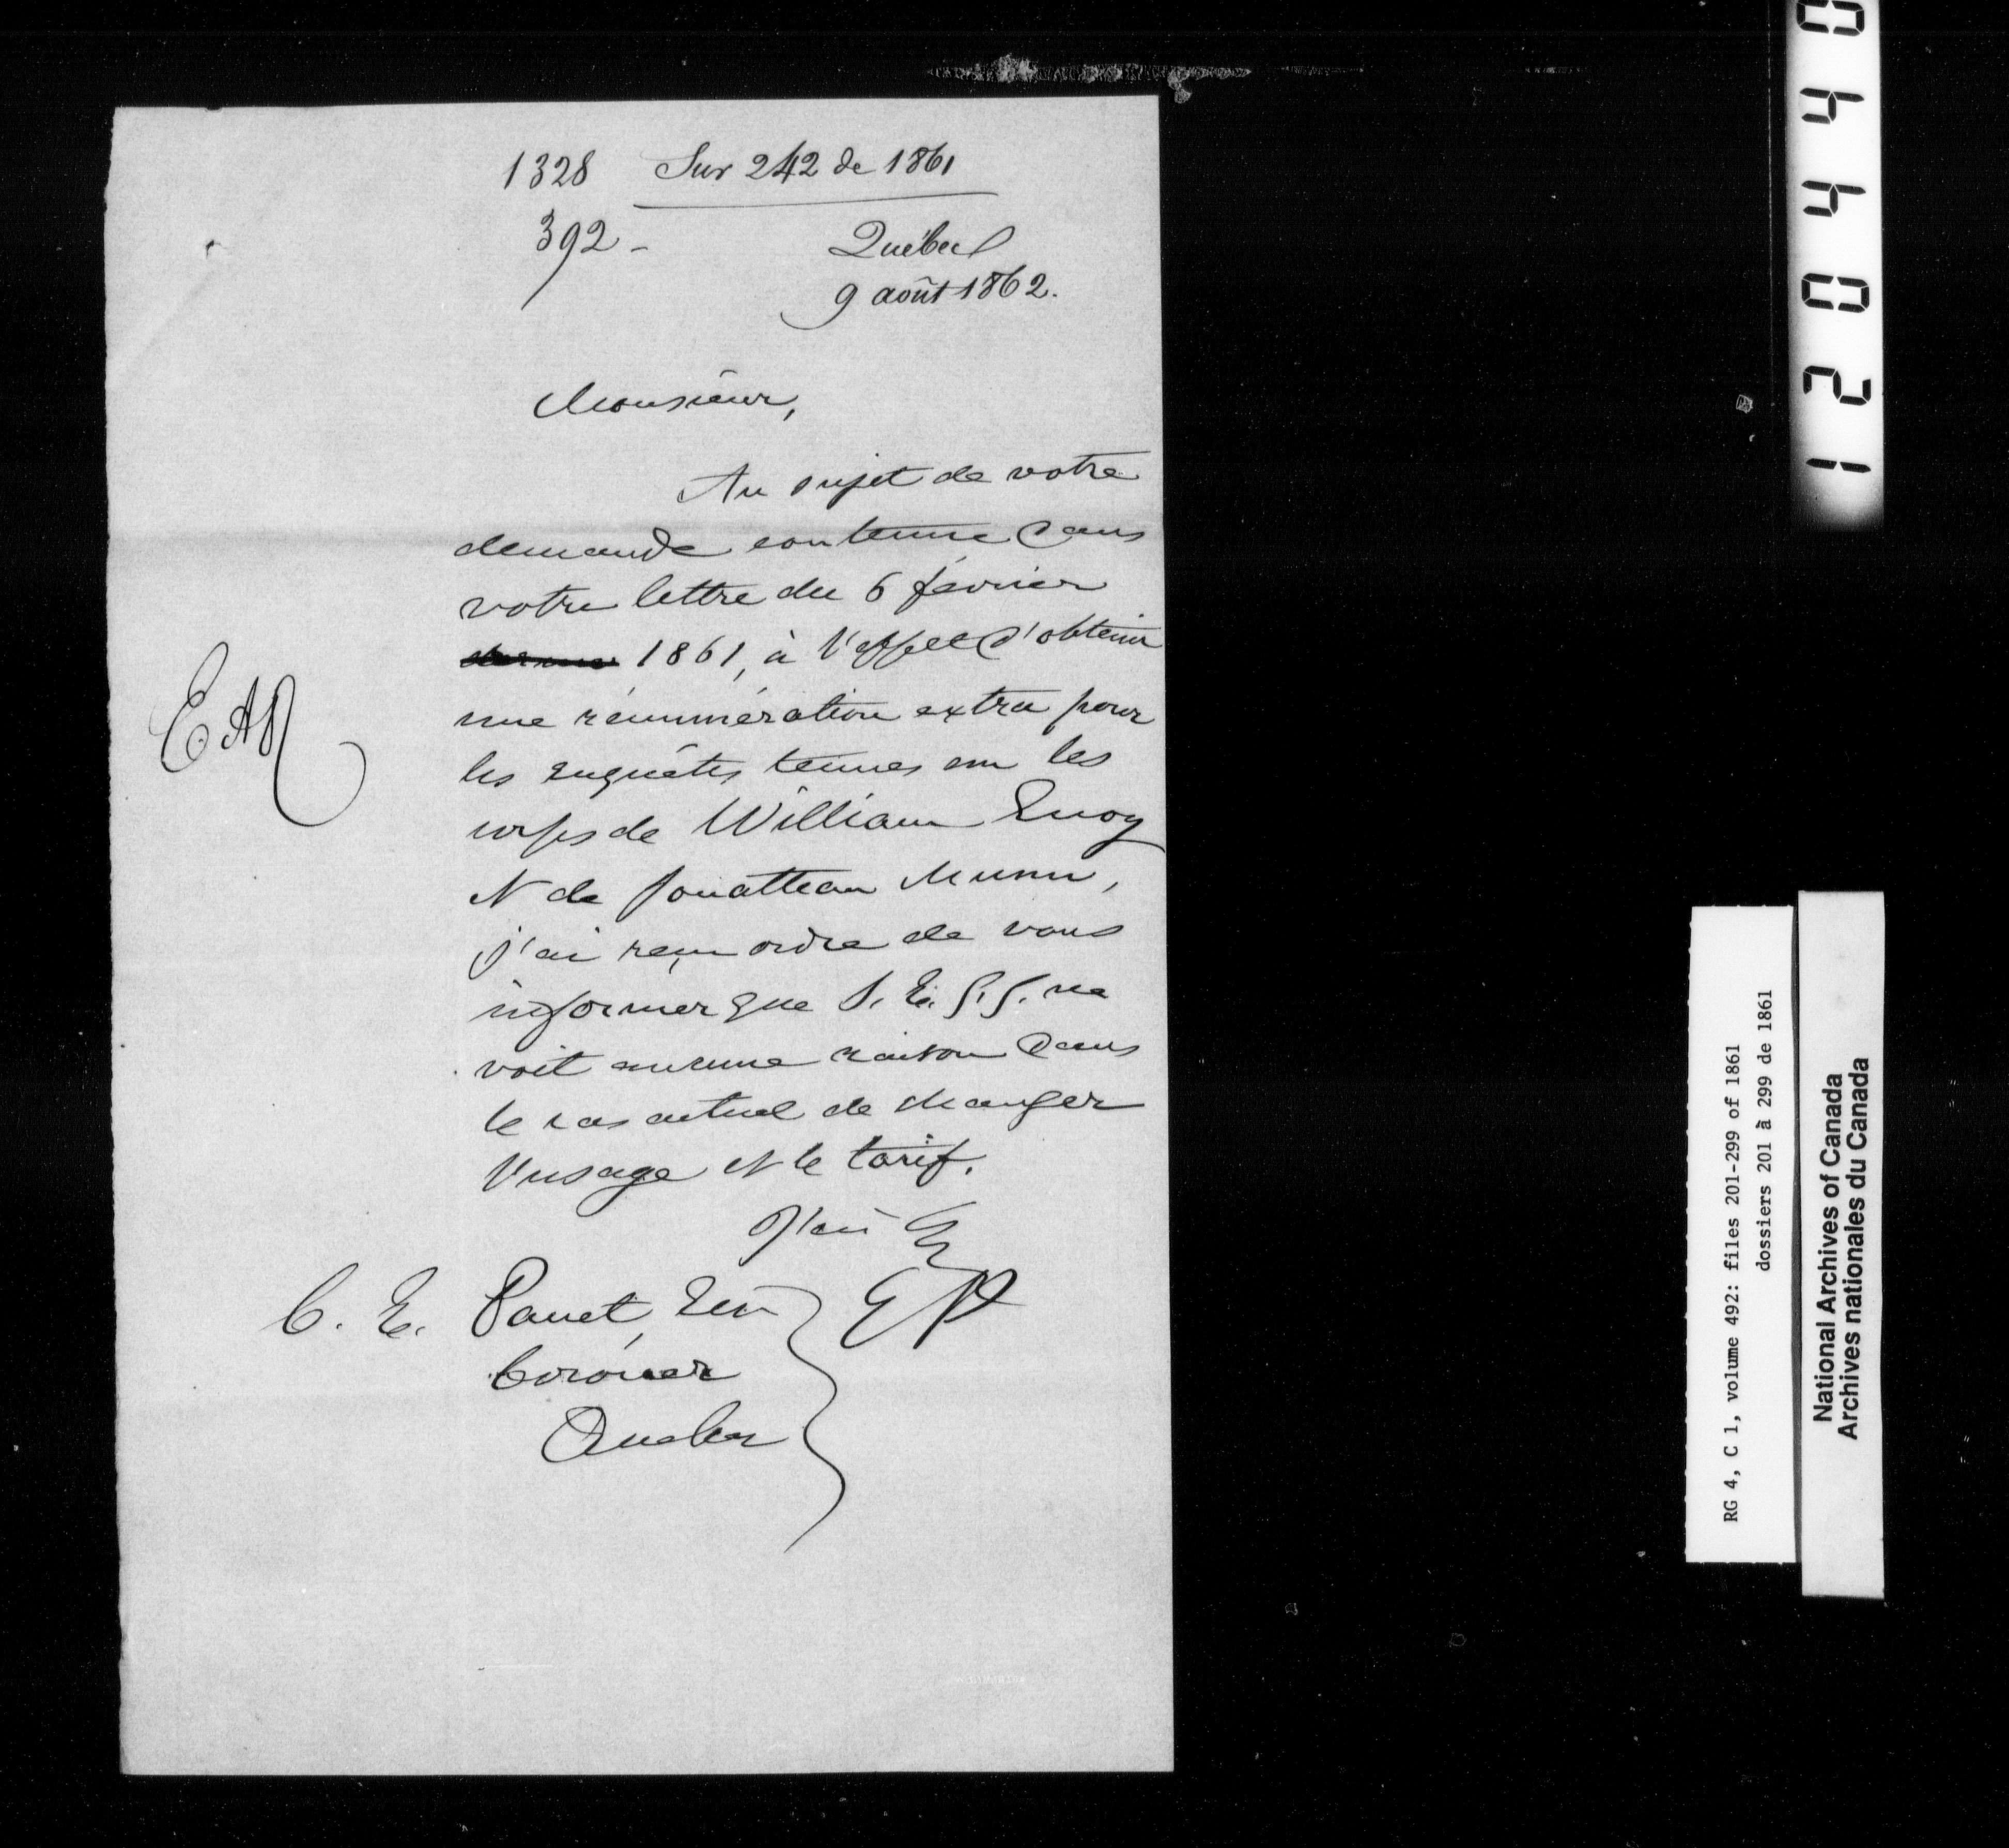 1328 Sur 242 de 1861
392 -
Québec
9 août 1862.
Monsieur,
Au sujet de votre
demande contenue dans
votre lettre du 6 février
1861, à l'effet d'obtenir
une rémunération extra pour
les enquêtes tenues sur les
corps de William Quoy
et de Jonathan Munn,
j'ai reçu ordre de vous
informer que S. E. G. G. ne
voit aucune raison dans
le cas actuel de changer
l'usage et le tarif.
J'ai
EAR
C. E. Panet, Ecr
Coroner
Quebec
120440
RG 4, C 1, volume 492: files 201-299 of 1861
dossiers 201 à 299 de 1861
National Archives of Canada
Archives nationales du Canada